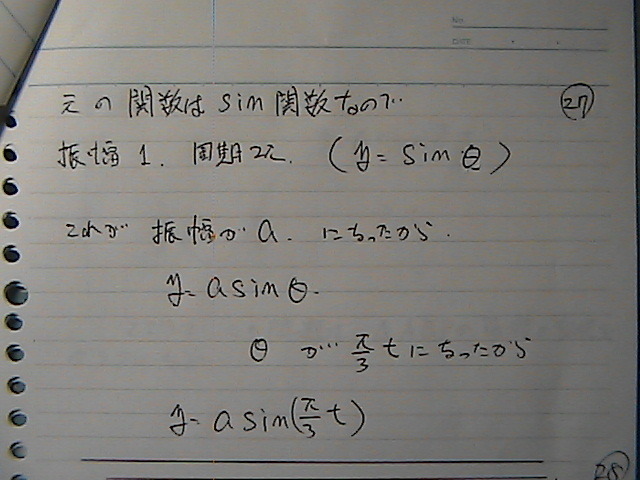 No.
DATE
元の関数はsin関数なので 27
振幅1. 周期2π. (y=sinθ)
これが 振幅がa. になったから.
y=asinθ.
θ が π/3 tになったから
y=asin(π/3 t)
28